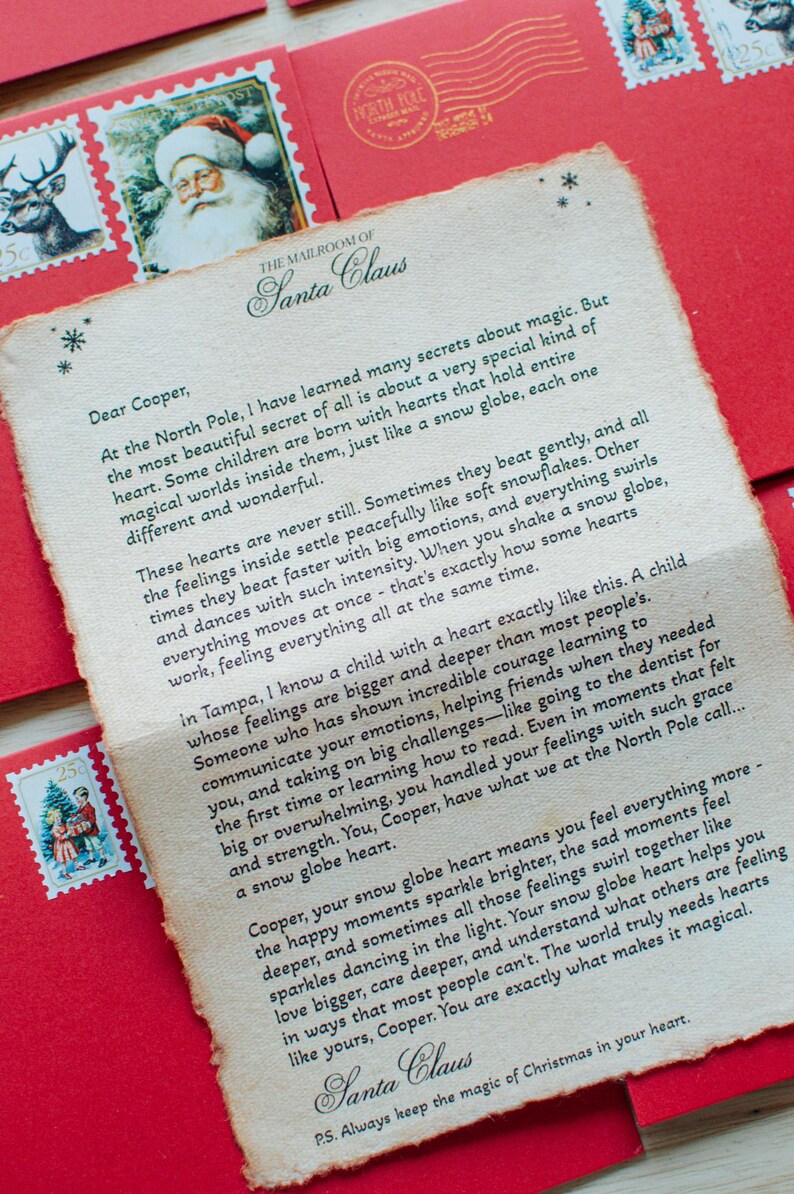 25c
NORTH POLE
EXPRESS MAIL
25c
25c
THE MAILROOM OF
Santa Claus
Dear Cooper,
At the North Pole, I have learned many secrets about magic. But
the most beautiful secret of all is about a very special kind of
heart. Some children are born with hearts that hold entire
magical worlds inside them, just like a snow globe, each one
different and wonderful.
These hearts are never still. Sometimes they beat gently, and all
the feelings inside settle peacefully like soft snowflakes. Other
times they beat faster with big emotions, and everything swirls
and dances with such intensity. When you shake a snow globe,
everything moves at once - that's exactly how some hearts
work, feeling everything all at the same time.
In Tampa, I know a child with a heart exactly like this. A child
whose feelings are bigger and deeper than most people's.
Someone who has shown incredible courage learning to
communicate your emotions, helping friends when they needed
you, and taking on big challenges—like going to the dentist for
the first time or learning how to read. Even in moments that felt
big or overwhelming, you handled your feelings with such grace
and strength. You, Cooper, have what we at the North Pole call...
a snow globe heart.
Cooper, your snow globe heart means you feel everything more -
the happy moments sparkle brighter, the sad moments feel
deeper, and sometimes all those feelings swirl together like
sparkles dancing in the light. Your snow globe heart helps you
love bigger, care deeper, and understand what others are feeling
in ways that most people can't. The world truly needs hearts
like yours, Cooper. You are exactly what makes it magical.
Santa Claus
P.S. Always keep the magic of Christmas in your heart.